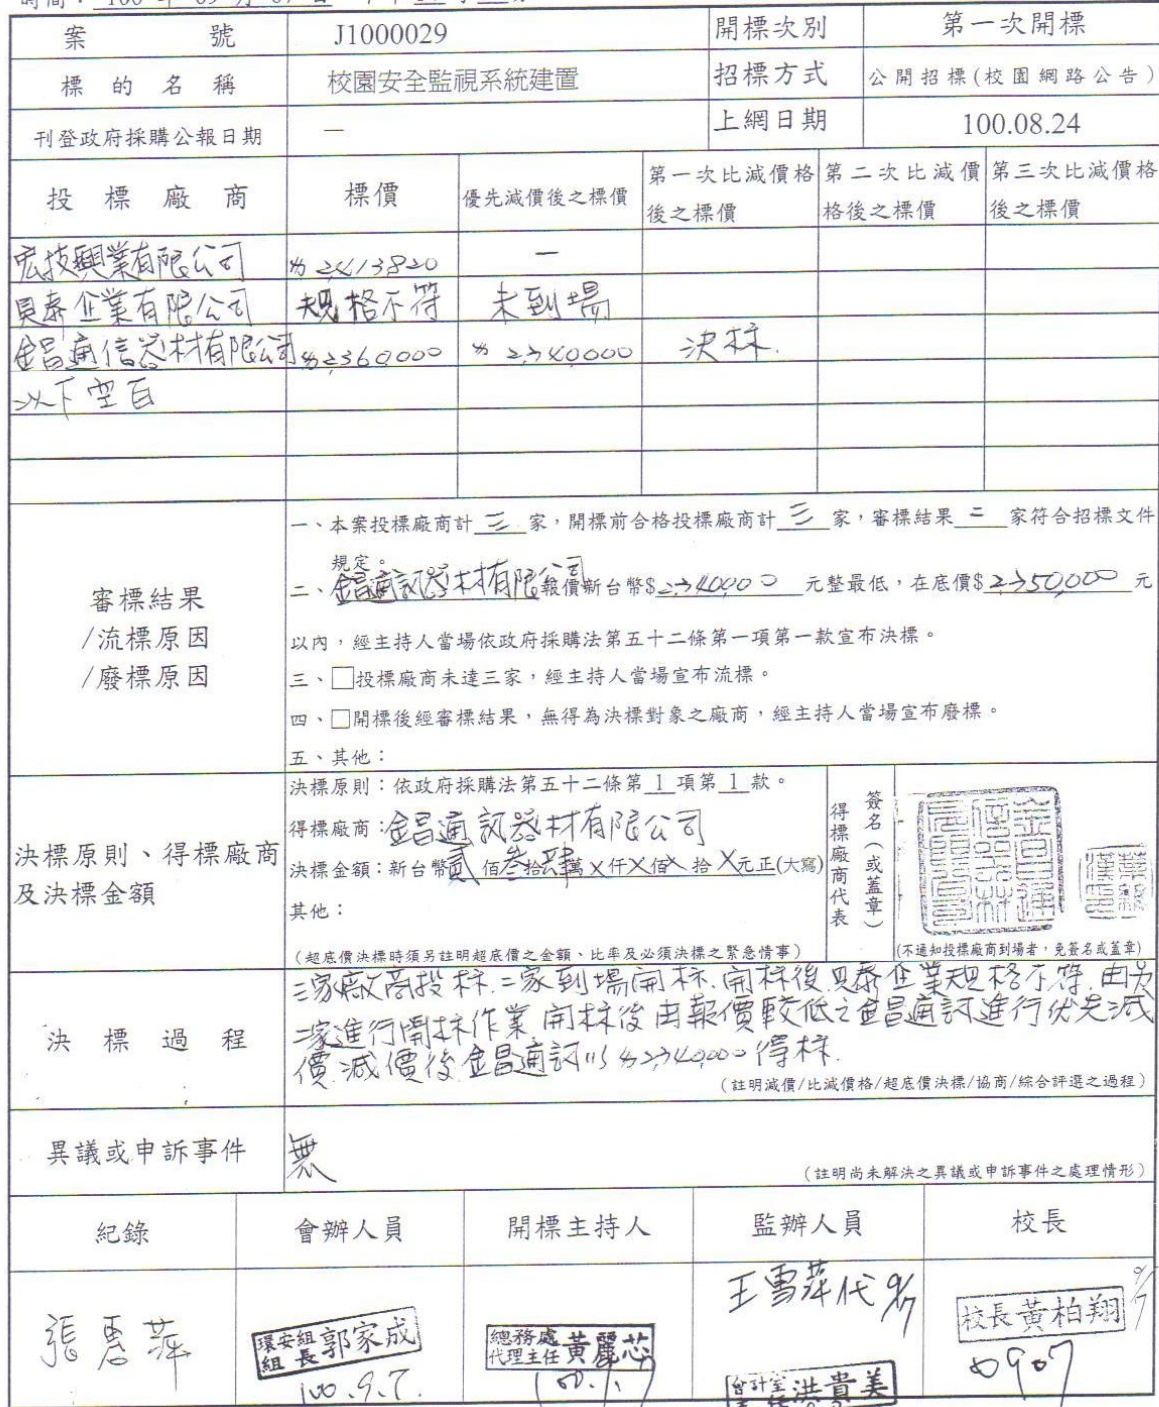 時間：100 年 09 月 07 日
案 號 J1000029 開標次別 第一次開標
標 的 名 稱 校園安全監視系統建置 招標方式 公開招標(校園網路公告)
刊登政府採購公報日期 — 上網日期 100.08.24
投 標 廠 商 標價 優先減價後之標價 第一次比減價格後之標價 第二次比減價格後之標價 第三次比減價格後之標價
宏技興業有限公司 $2,413820 —
貝泰企業有限公司 規格不符 未到場
金昌通信器材有限公司 $2,360,000 $2,340000 決标.
以下空白
審標結果
/流標原因
/廢標原因
一、本案投標廠商計 三 家，開標前合格投標廠商計 三 家，審標結果 二 家符合招標文件
規定。
二、金昌通訊器材有限公司報價新台幣$2,340,000 元整最低，在底價$2,350,000 元
以內，經主持人當場依政府採購法第五十二條第一項第一款宣布決標。
三、□投標廠商未達三家，經主持人當場宣布流標。
四、□開標後經審標結果，無得為決標對象之廠商，經主持人當場宣布廢標。
五、其他：
決標原則、得標廠商
及決標金額
決標原則：依政府採購法第五十二條第 1 項第 1 款。
得標廠商：金昌通訊器材有限公司
決標金額：新台幣貳佰叁拾肆萬X仟X佰X拾X元正(大寫)
其他：
(超底價決標時須另註明超底價之金額、比率及必須決標之緊急情事)
得標廠商代表
簽名（或蓋章）
(不通知投標廠商到場者，免簽名或蓋章)
決 標 過 程
三家廠商投标.二家到場開标.開标後貝泰企業規格不符.由另
二家進行開标作業 開标後由報價較低之金昌通訊進行优先減
價.減價後金昌通訊以$2,340,000得标.
(註明減價/比減價格/超底價決標/協商/綜合評選之過程)
異議或申訴事件 無
(註明尚未解決之異議或申訴事件之處理情形)
紀錄 會辦人員 開標主持人 監辦人員 校長
環安組組長 郭家成
100.9.7.
總務處代理主任 黃麗芯
王雪萍代 9/7
會計室 洪貴美
校長黃柏翔 9/7
0907